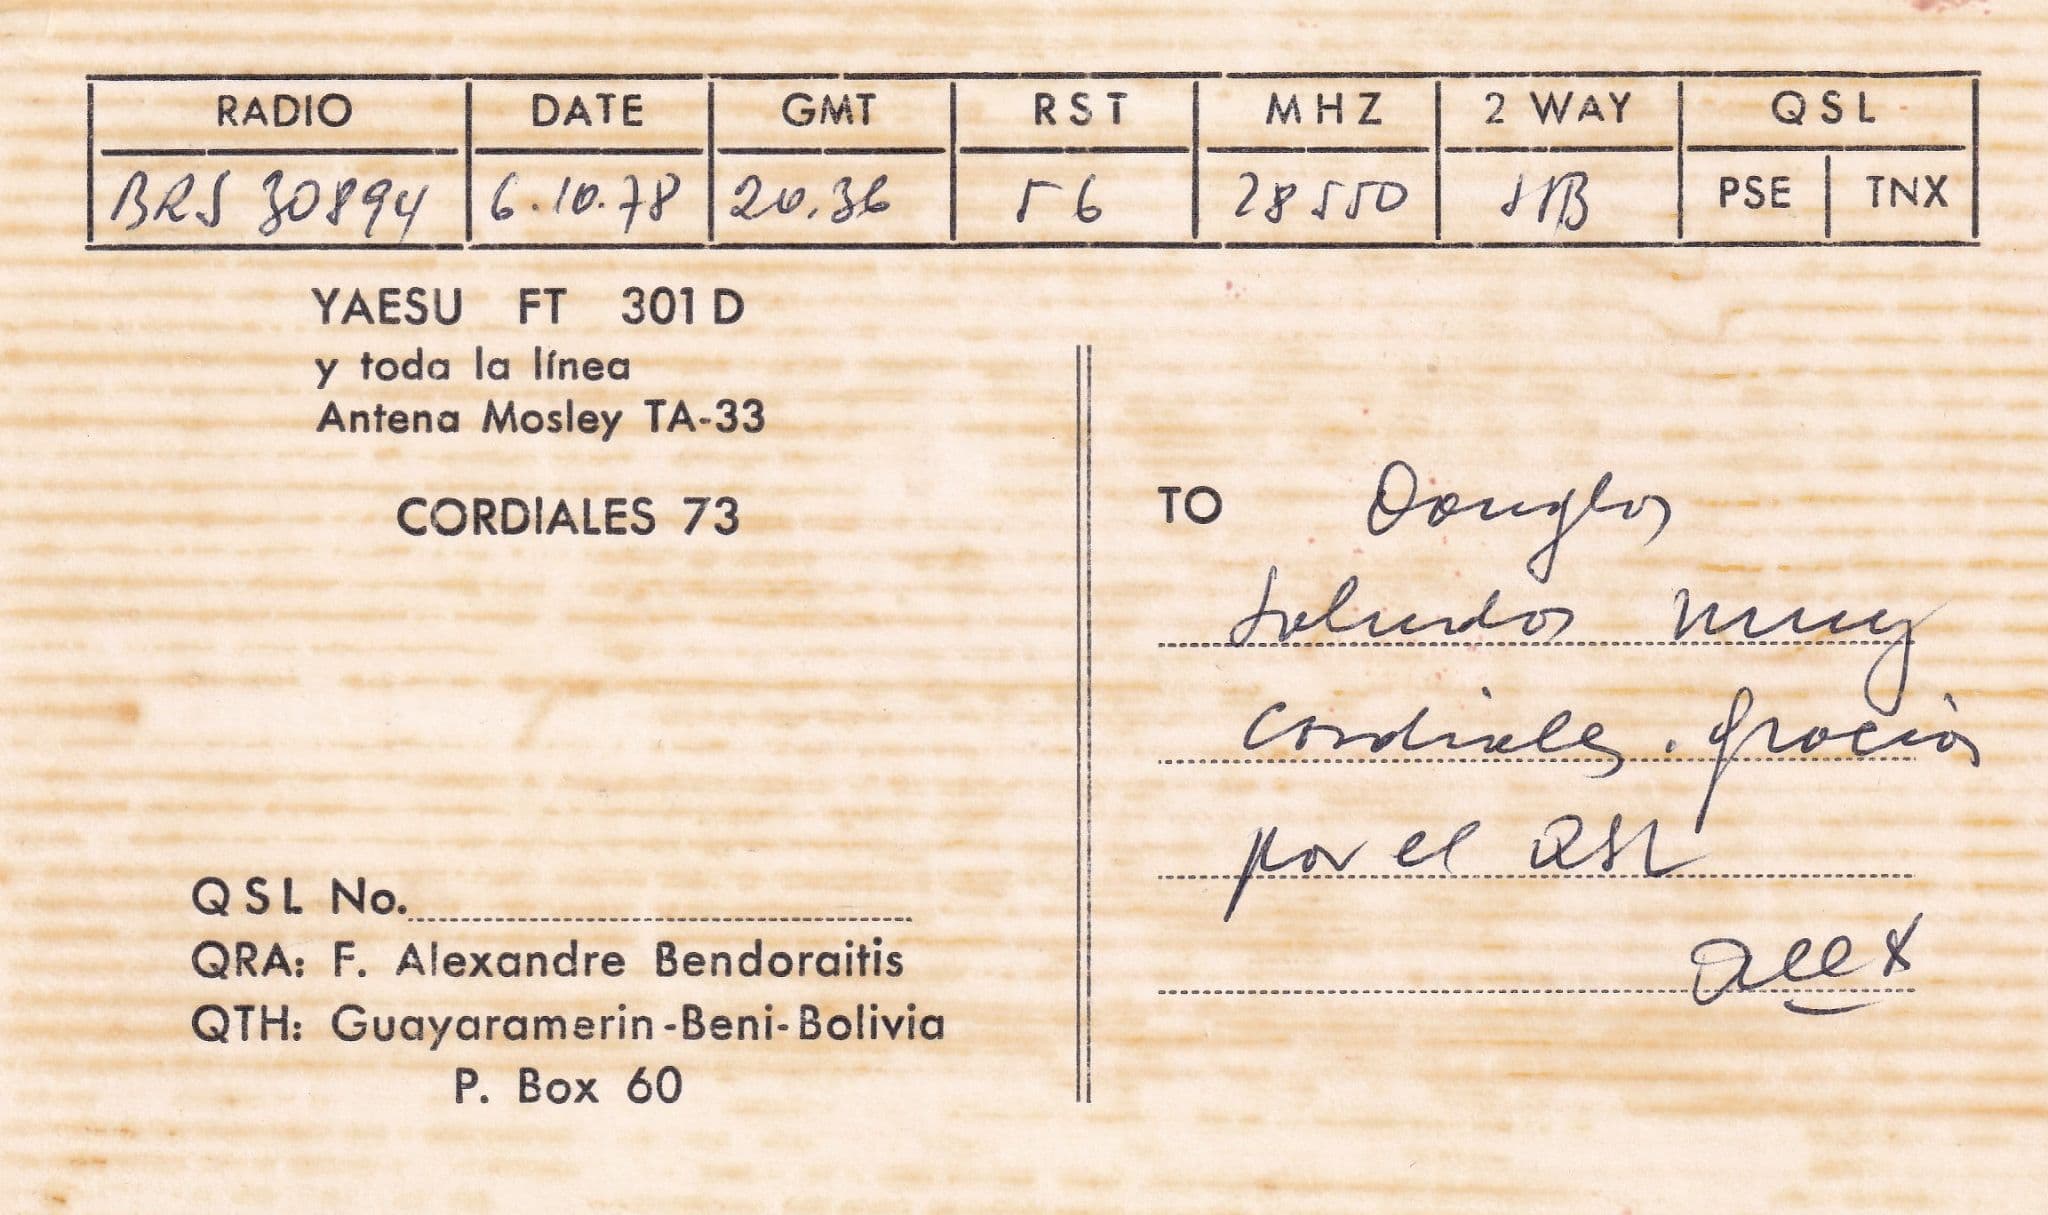 RADIO DATE GMT RST MHZ 2 WAY QSL
BRS 30894 6.10.78 20.36 56 28550 SSB PSE TNX
YAESU FT 301 D
y toda la línea
Antena Mosley TA-33
CORDIALES 73
QSL No.
QRA: F. Alexandre Bendoraitis
QTH: Guayaramerin-Beni-Bolivia
P. Box 60
TO Douglas
Saludos muy
cordiales. gracias
por el QSL
Alex